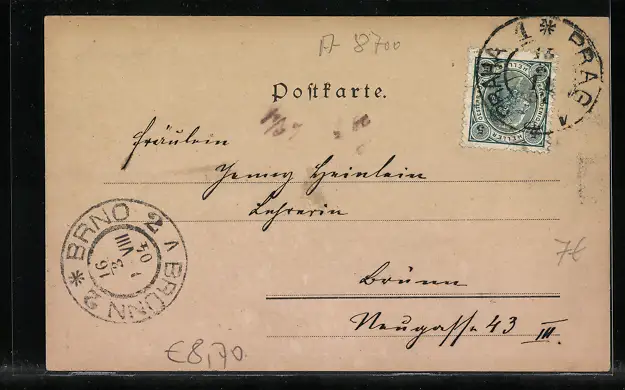 A 8700
1 * PRAG
PRAHA
Postkarte.
5 HELLER
Fräulein
Jenny Heinlein
Lehrerin
BRNO 2
BRÜNN 2 *
16
3 VIII
04
7€
Brünn
Neugasse 43 III.
€8,70